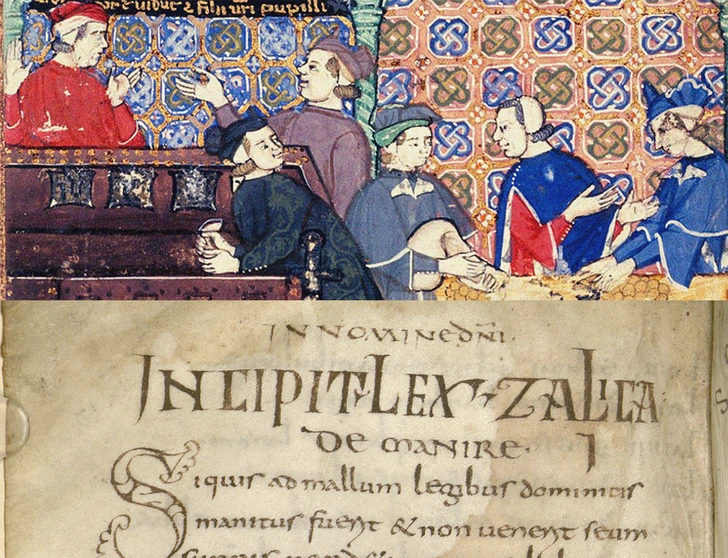 & filii uri pupilli
IN NOMINE DNI.
INCIPIT LEX ZALICA
DE MANIRE. I
Siquis ad mallum legibus dominicis
manitus fuerit & non uenerit seum